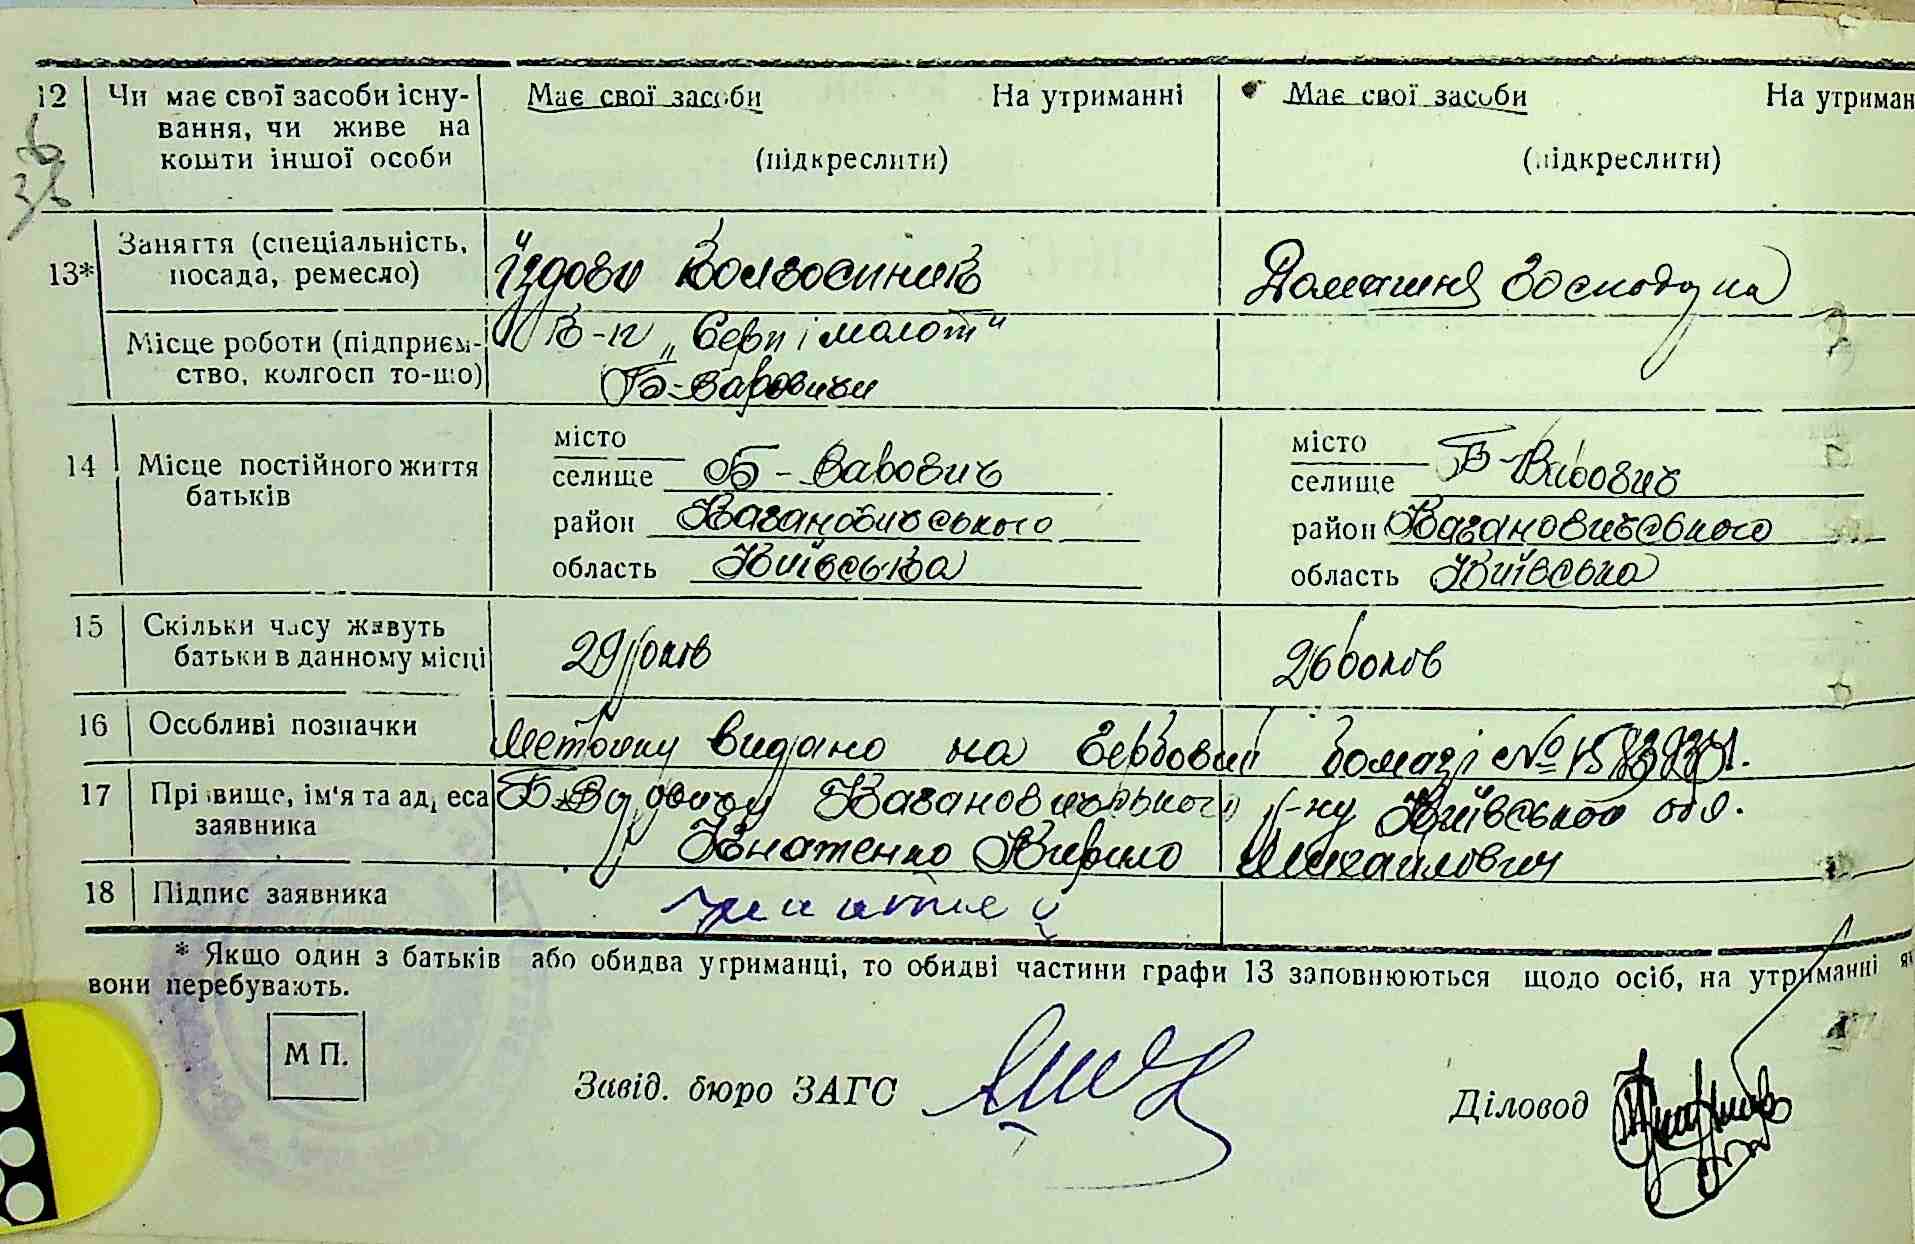 12 Чи має свої засоби існу- Має свої засоби На утриманні Має свої засоби На утриман
вання, чи живе на
кошти іншої особи (підкреслити) (підкреслити)
13* Заняття (спеціальність,
посада, ремесло) Колгоспник Домашня господарка
Місце роботи (підприєм- К-п „Серп і молот"
ство, колгосп то-що) Б-Варовичи
14 Місце постійного життя
батьків
місто місто
селище Б-Варович селище Б-Варович
район Кагановичського район Кагановичського
область Київська область Київська
15 Скільки часу живуть
батьки в данному місці 29 років 26 років
16 Особливі позначки Метрику видано на гербовій бомазі №
17 Прізвище, ім'я та адреса Б-Варовичи Кагановичського р-ну Київської обл.
заявника Кнатенко Кирило Михайлович
18 Підпис заявника
* Якщо один з батьків або обидва утриманці, то обидві частини графи 13 заповнюються щодо осіб, на утриманні як
вони перебувають.
М П.
Завід. бюро ЗАГС
Діловод